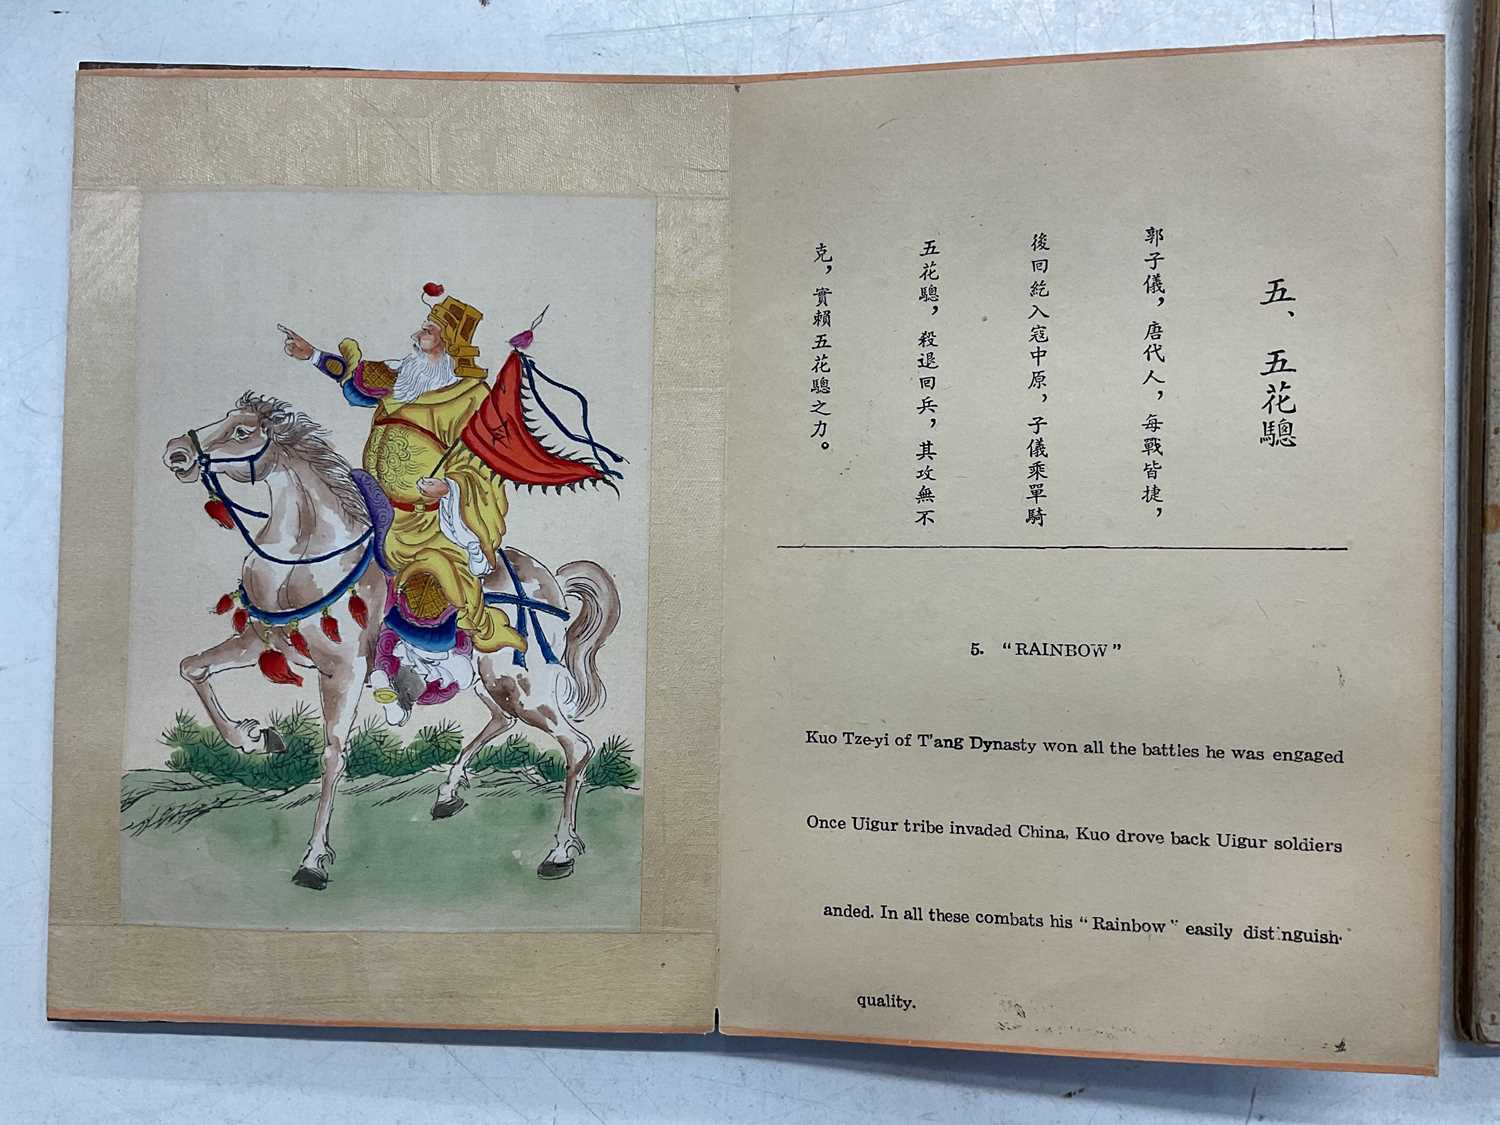 五、五花驄
郭子儀，唐代人，每戰皆捷，
後回紇入寇中原，子儀乘單騎
五花驄，殺退回兵，其攻無不
克，實賴五花驄之力。
5. “RAINBOW”
Kuo Tze-yi of T'ang Dynasty won all the battles he was engaged
Once Uigur tribe invaded China, Kuo drove back Uigur soldiers
anded. In all these combats his “Rainbow” easily distinguish-
quality.